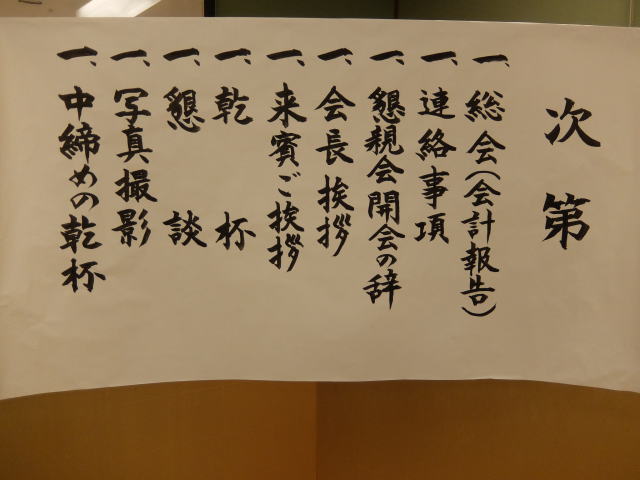 次第
一、総会(会計報告)
一、連絡事項
一、懇親会開会の辞
一、会長挨拶
一、来賓ご挨拶
一、乾杯
一、懇談
一、写真撮影
一、中締めの乾杯